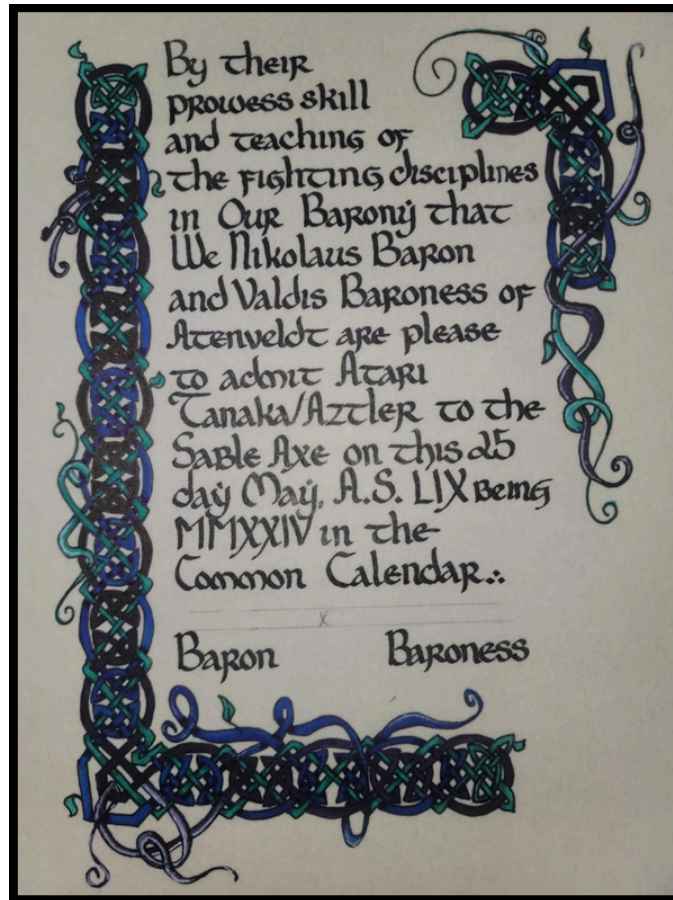 By their
prowess skill
and teaching of
the fighting disciplines
in Our Barony that
We Nikolaus Baron
and Valdis Baroness of
Atenveldt are please
to admit Atari
Tanaka/Aztler to the
Sable Axe on this 25
day May, A.S. LIX Being
MMXXIV in the
Common Calendar.:.
x
Baron Baroness